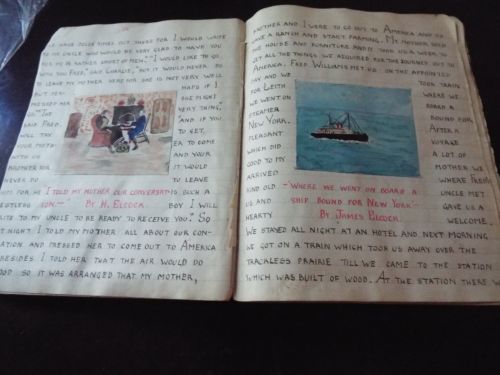 HAVE TOLD TIMES OUT THERE FOR I WOULD WRITE
TO THE UNCLE WHO WOULD BE VERY GLAD TO HAVE YOU
FOR HE IS RATHER SHORT OF MEN". "I WOULD LIKE TO GO
WITH YOU FRED," SAID CHARLIE, "BUT IT WOULD NEVER DO
TO LEAVE MY MOTHER HERE FOR SHE IS NOT VERY WELL
BUT PERHAPS IF I
PRESSED HER SHE MIGHT
VERY THING,"
SAID FRED. "AND IF YOU
WILL TRY TO GET,
YOUR MOTHER TO COME
WITH US AND YOUR
IT WOULD
NEVER DO TO LEAVE
SUCH A
BOY I WILL
"I TOLD MY MOTHER OUR CONVERSATION.—"
BY H. ELCOCK.
WRITE TO MY UNCLE TO BE READY TO RECEIVE YOU." SO
THAT NIGHT I TOLD MY MOTHER ALL ABOUT OUR CON-
-VERSATION AND PRESSED HER TO COME OUT TO AMERICA
BESIDES I TOLD HER THAT THE AIR WOULD DO
GOOD SO IT WAS ARRANGED THAT MY MOTHER,
BROTHER AND I WERE TO GO OUT TO AMERICA AND TO
HAVE A RANCH AND START FARMING. MY MOTHER SOLD
THE HOUSE AND FURNITURE AND IT TOOK US A WEEK TO
GET ALL THE THINGS WE REQUIRED FOR THE JOURNEY OUT TO
AMERICA. FRED WILLIAMS MET US ON THE APPOINTED
DAY AND WE TOOK TRAIN
FOR LEITH WHERE WE
WE WENT ON BOARD A
STEAMER BOUND FOR
NEW YORK. AFTER A
PLEASANT VOYAGE
WHICH DID A LOT OF
GOOD TO MY MOTHER WE
ARRIVED WHERE FREDS
KIND OLD UNCLE MET
US AND GAVE US A
HEARTY WELCOME.
"WHERE WE WENT ON BOARD A
SHIP BOUND FOR NEW YORK"
BY. JAMES ELCOCK.
WE STAYED ALL NIGHT AT AN HOTEL AND NEXT MORNING
WE GOT ON A TRAIN WHICH TOOK US AWAY OVER THE
TRACKLESS PRAIRIE TILL WE CAME TO THE STATION
WHICH WAS BUILT OF WOOD. AT THE STATION THERE